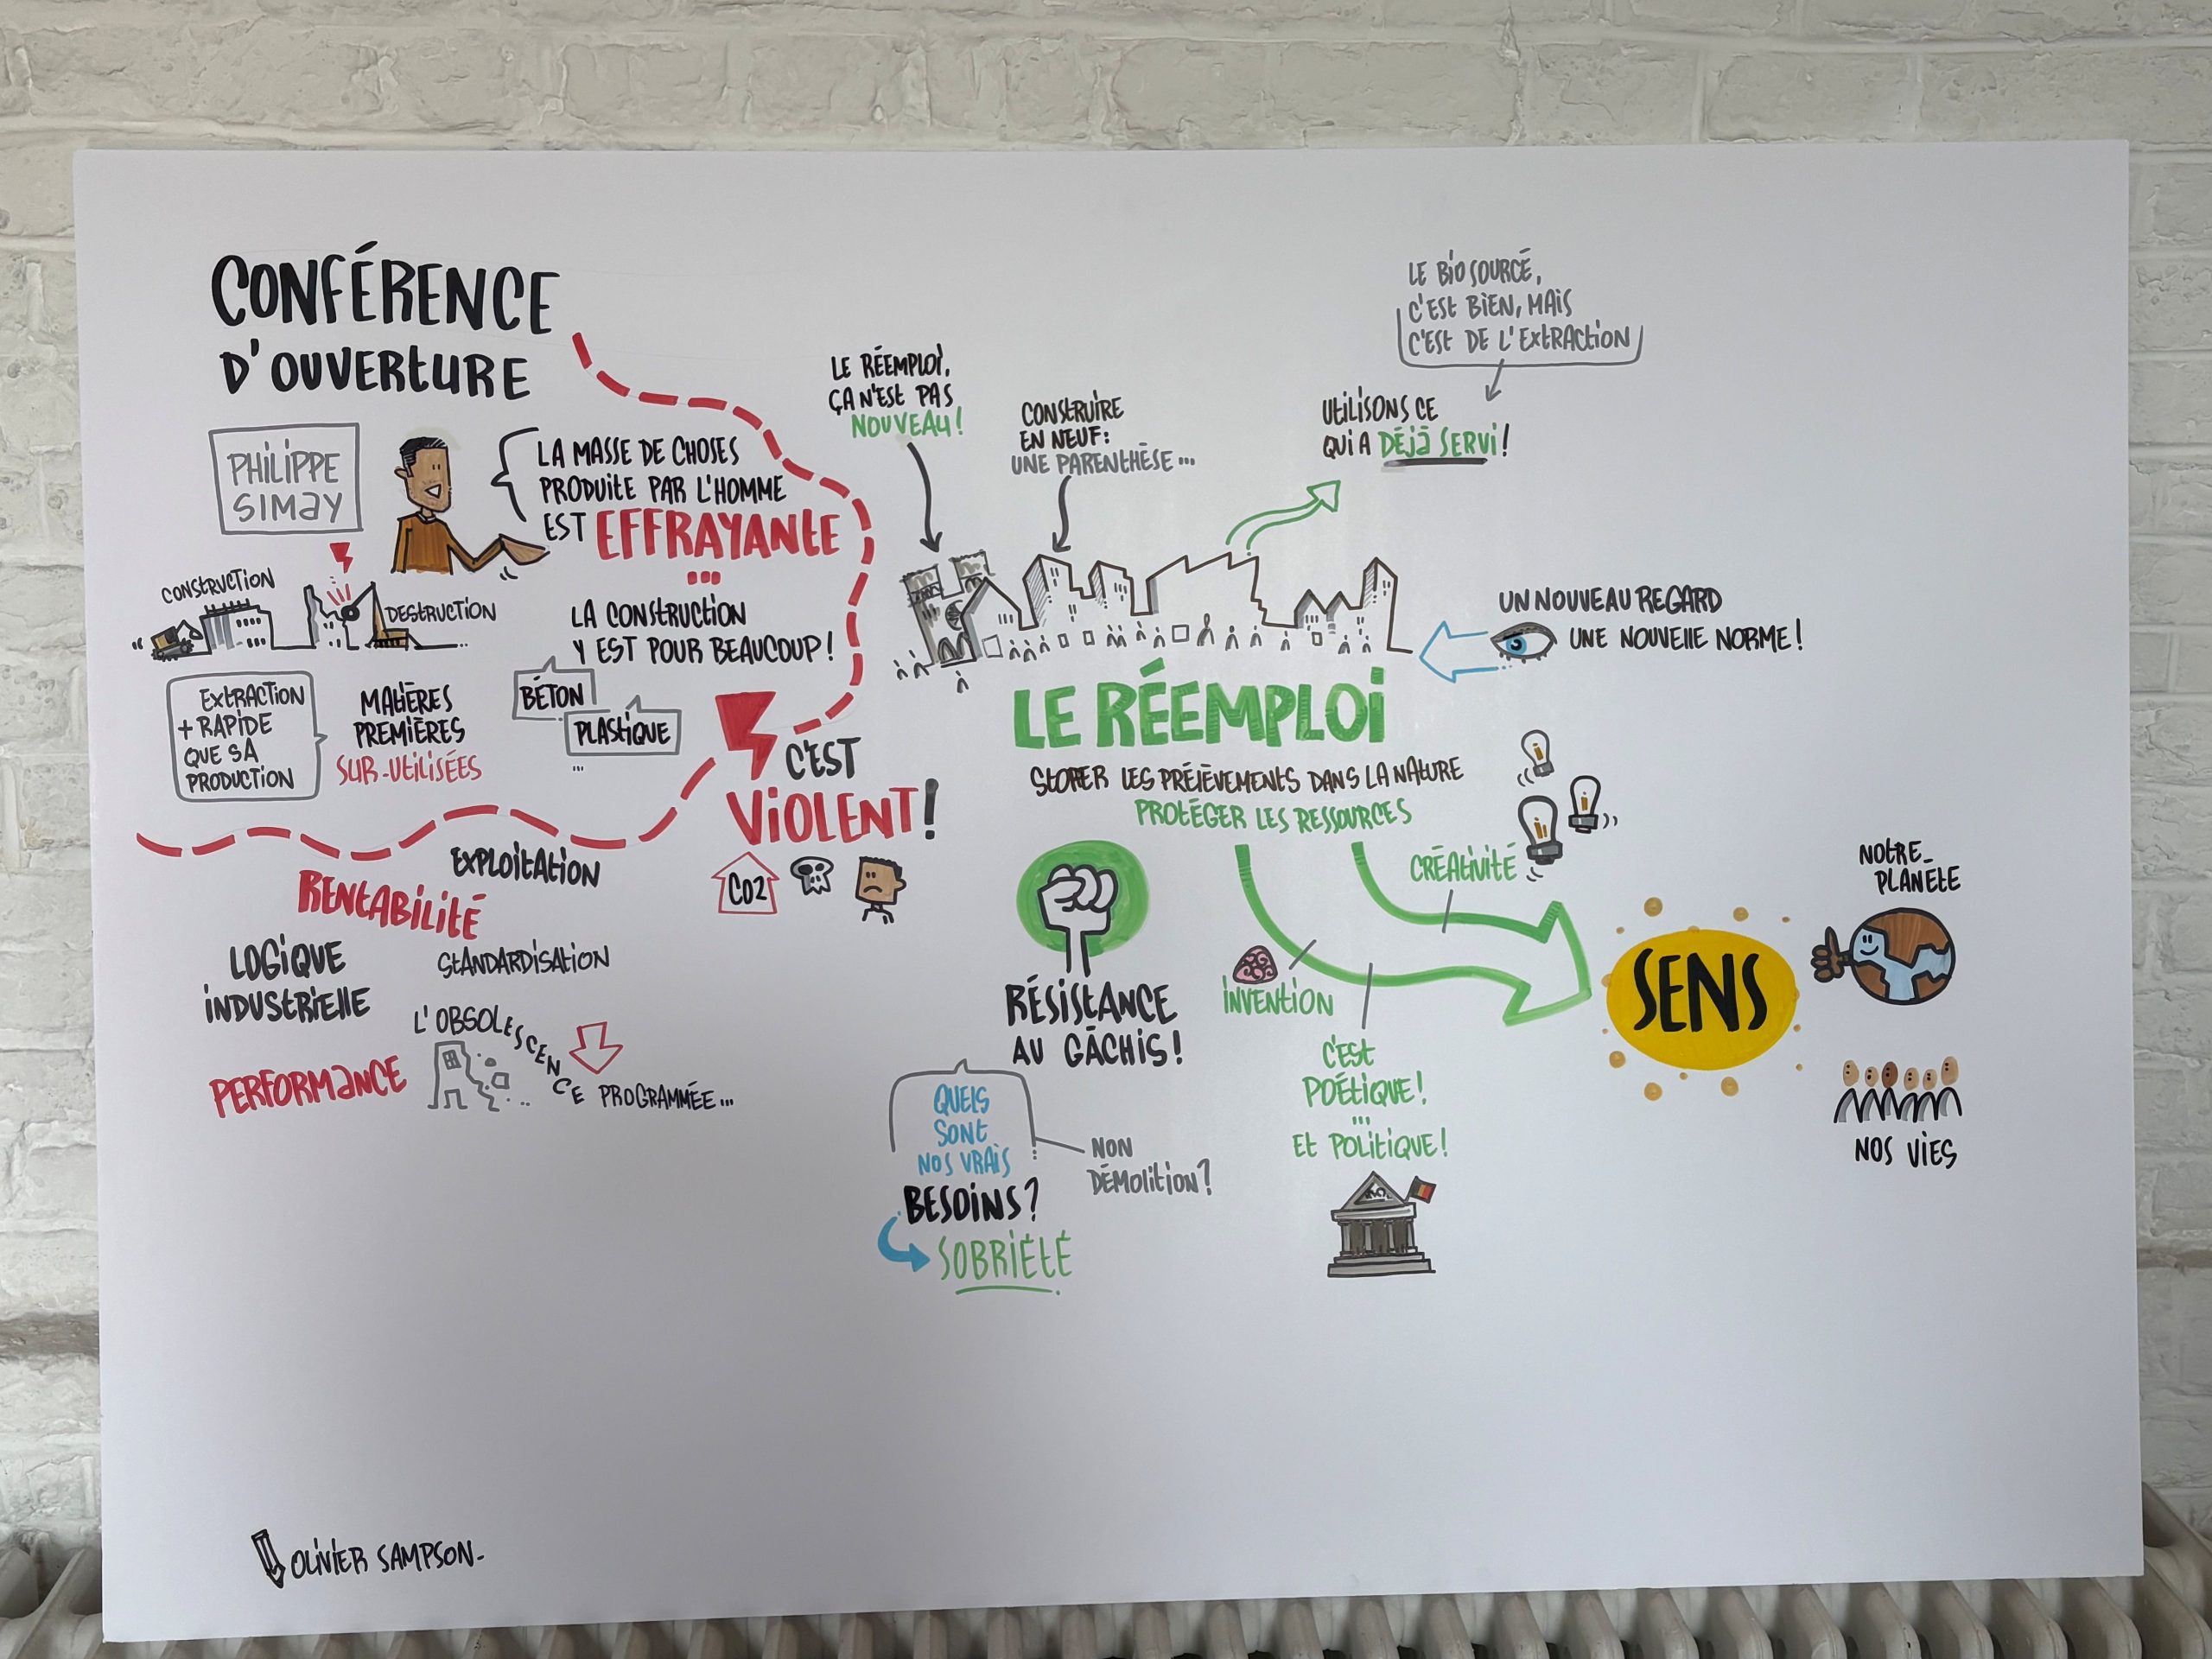 CONFÉRENCE
D'OUVERTURE
PHILIPPE
SIMAY
LA MASSE DE CHOSES
PRODUITE PAR L'HOMME
EST EFFRAYANTE
...
LA CONSTRUCTION
Y EST POUR BEAUCOUP !
BÉTON
PLASTIQUE
...
CONSTRUCTION
DESTRUCTION
EXTRACTION
+ RAPIDE
QUE SA
PRODUCTION
MATIÈRES
PREMIÈRES
SUR-UTILISÉES
C'EST
VIOLENT !
CO2
EXPLOITATION
RENTABILITÉ
LOGIQUE
INDUSTRIELLE
STANDARDISATION
PERFORMANCE
L'OBSOLESCENCE PROGRAMMÉE...
LE RÉEMPLOI,
ÇA N'EST PAS
NOUVEAU !
CONSTRUIRE
EN NEUF :
UNE PARENTHÈSE...
LE BIOSOURCÉ,
C'EST BIEN, MAIS
C'EST DE L'EXTRACTION
UTILISONS CE
QUI A DÉJÀ SERVI !
UN NOUVEAU REGARD
UNE NOUVELLE NORME !
LE RÉEMPLOI
STOPER LES PRÉLÈVEMENTS DANS LA NATURE
PROTÉGER LES RESSOURCES
RÉSISTANCE
AU GÂCHIS !
QUELS
SONT
NOS VRAIS
BESOINS ?
SOBRIÉTÉ
NON
DÉMOLITION ?
CRÉATIVITÉ
INVENTION
C'EST
POÉTIQUE !
...
ET POLITIQUE !
SENS
NOTRE
PLANETE
NOS VIES
OLIVIER SAMPSON-